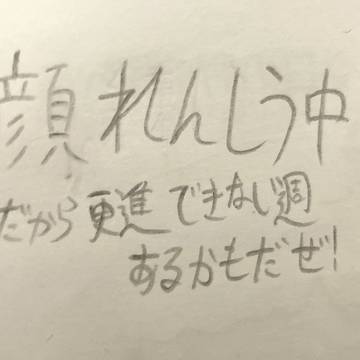 顔れんしう中
だから更進できない週
あるかもだぜ!